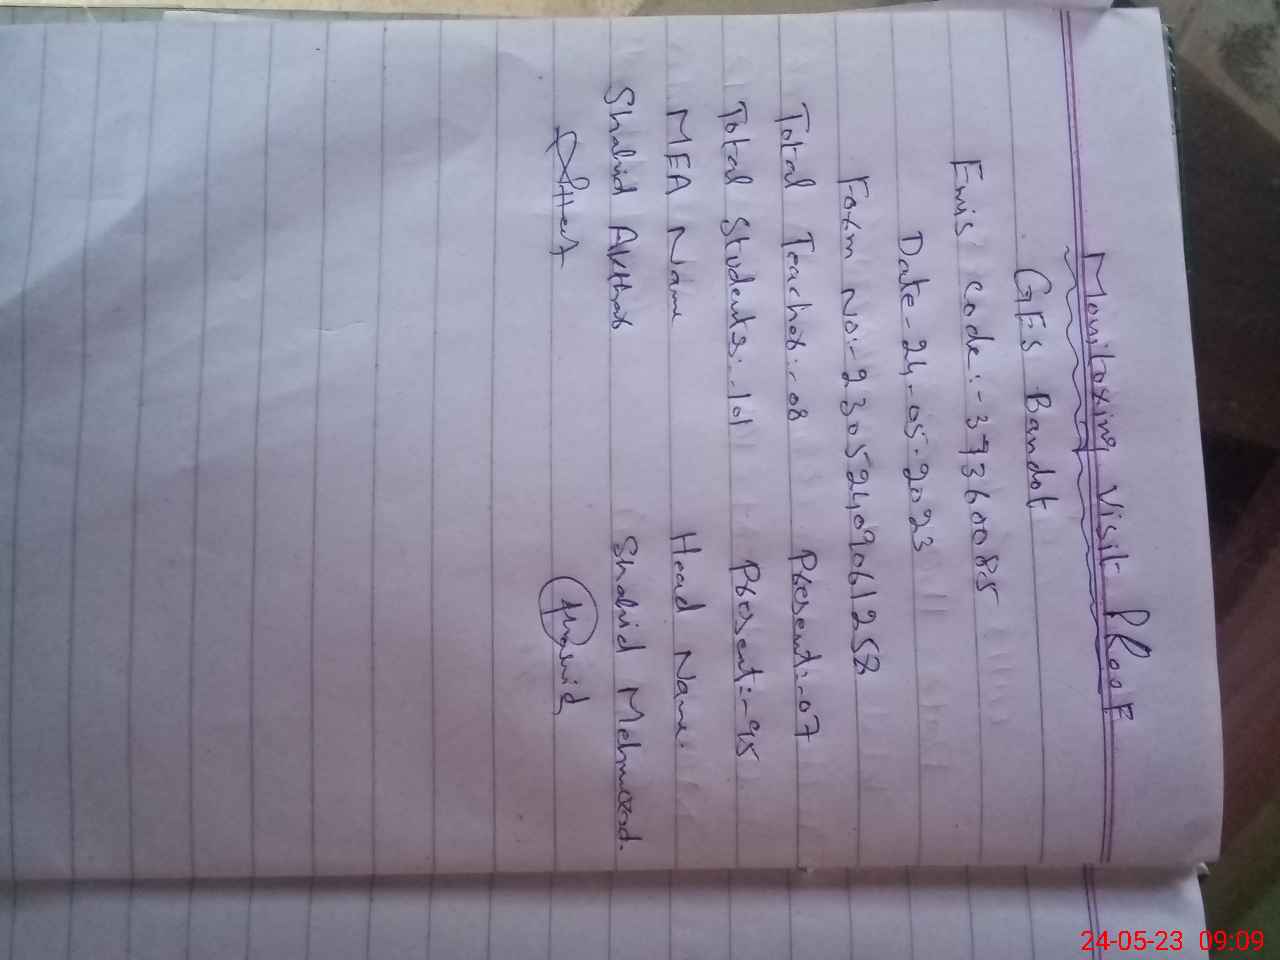 Monitoring Visit Proof
GFS Bandot
Emis code:-37360085
Date-24-05-2023
Form No:-23052409061258
Total Teacher:-08 Present:-07
Total Students:-101 Present:-95
MEA Name Head Name.
Shahid Akthar Shahid Mehmood.
24-05-23 09:09